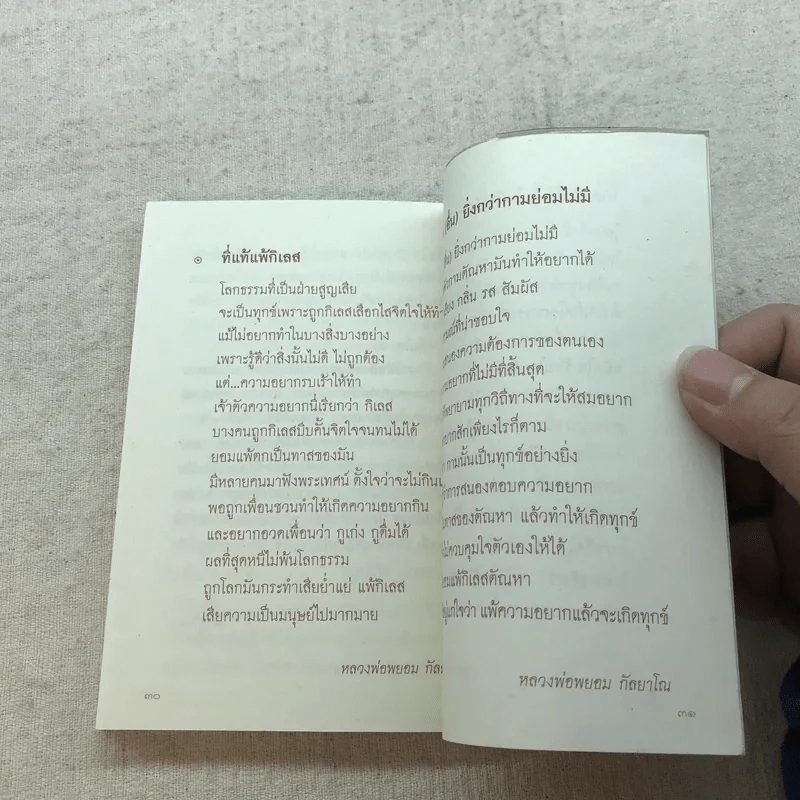 ๑ ที่แท้แพ้กิเลส
โลกธรรมที่เป็นฝ่ายสูญเสีย
จะเป็นทุกข์เพราะถูกกิเลสเสือกไสจิตใจให้ทำ
แม้ไม่อยากทำในบางสิ่งบางอย่าง
เพราะรู้ดีว่าสิ่งนั้นไม่ดี ไม่ถูกต้อง
แต่...ความอยากรบเร้าให้ทำ
เจ้าตัวความอยากนี่เรียกว่า กิเลส
บางคนถูกกิเลสบีบคั้นจิตใจจนทนไม่ได้
ยอมแพ้ตกเป็นทาสของมัน
มีหลายคนมาฟังพระเทศน์ ตั้งใจว่าจะไม่กิน
พอถูกเพื่อนชวนทำให้เกิดความอยากกิน
และอยากอวดเพื่อนว่า กูเก่ง กูดื่มได้
ผลที่สุดหนีไม่พ้นโลกธรรม
ถูกโลกมันกระทำเสียย่ำแย่ แพ้กิเลส
เสียความเป็นมนุษย์ไปมากมาย
หลวงพ่อพยอม
๓๐
ยิ่งกว่ากามย่อมไม่มี
ยิ่งกว่ากามย่อมไม่มี
กามตัณหามันทำให้อยากได้
กลิ่น รส สัมผัส
ที่น่าชอบใจ
ของความต้องการของตนเอง
อยากที่ไม่มีที่สิ้นสุด
พยายามทุกวิถีทางที่จะให้สมอยาก
สักเพียงไรก็ตาม
กามนั้นเป็นทุกข์อย่างยิ่ง
การสนองตอบความอยาก
ทาสของตัณหา แล้วทำให้เกิดทุกข์
ควบคุมใจตัวเองให้ได้
แพ้กิเลสตัณหา
แก่ใจว่า แพ้ความอยากแล้วจะเกิดทุกข์
หลวงพ่อพยอม กัลยาโณ
๓๑